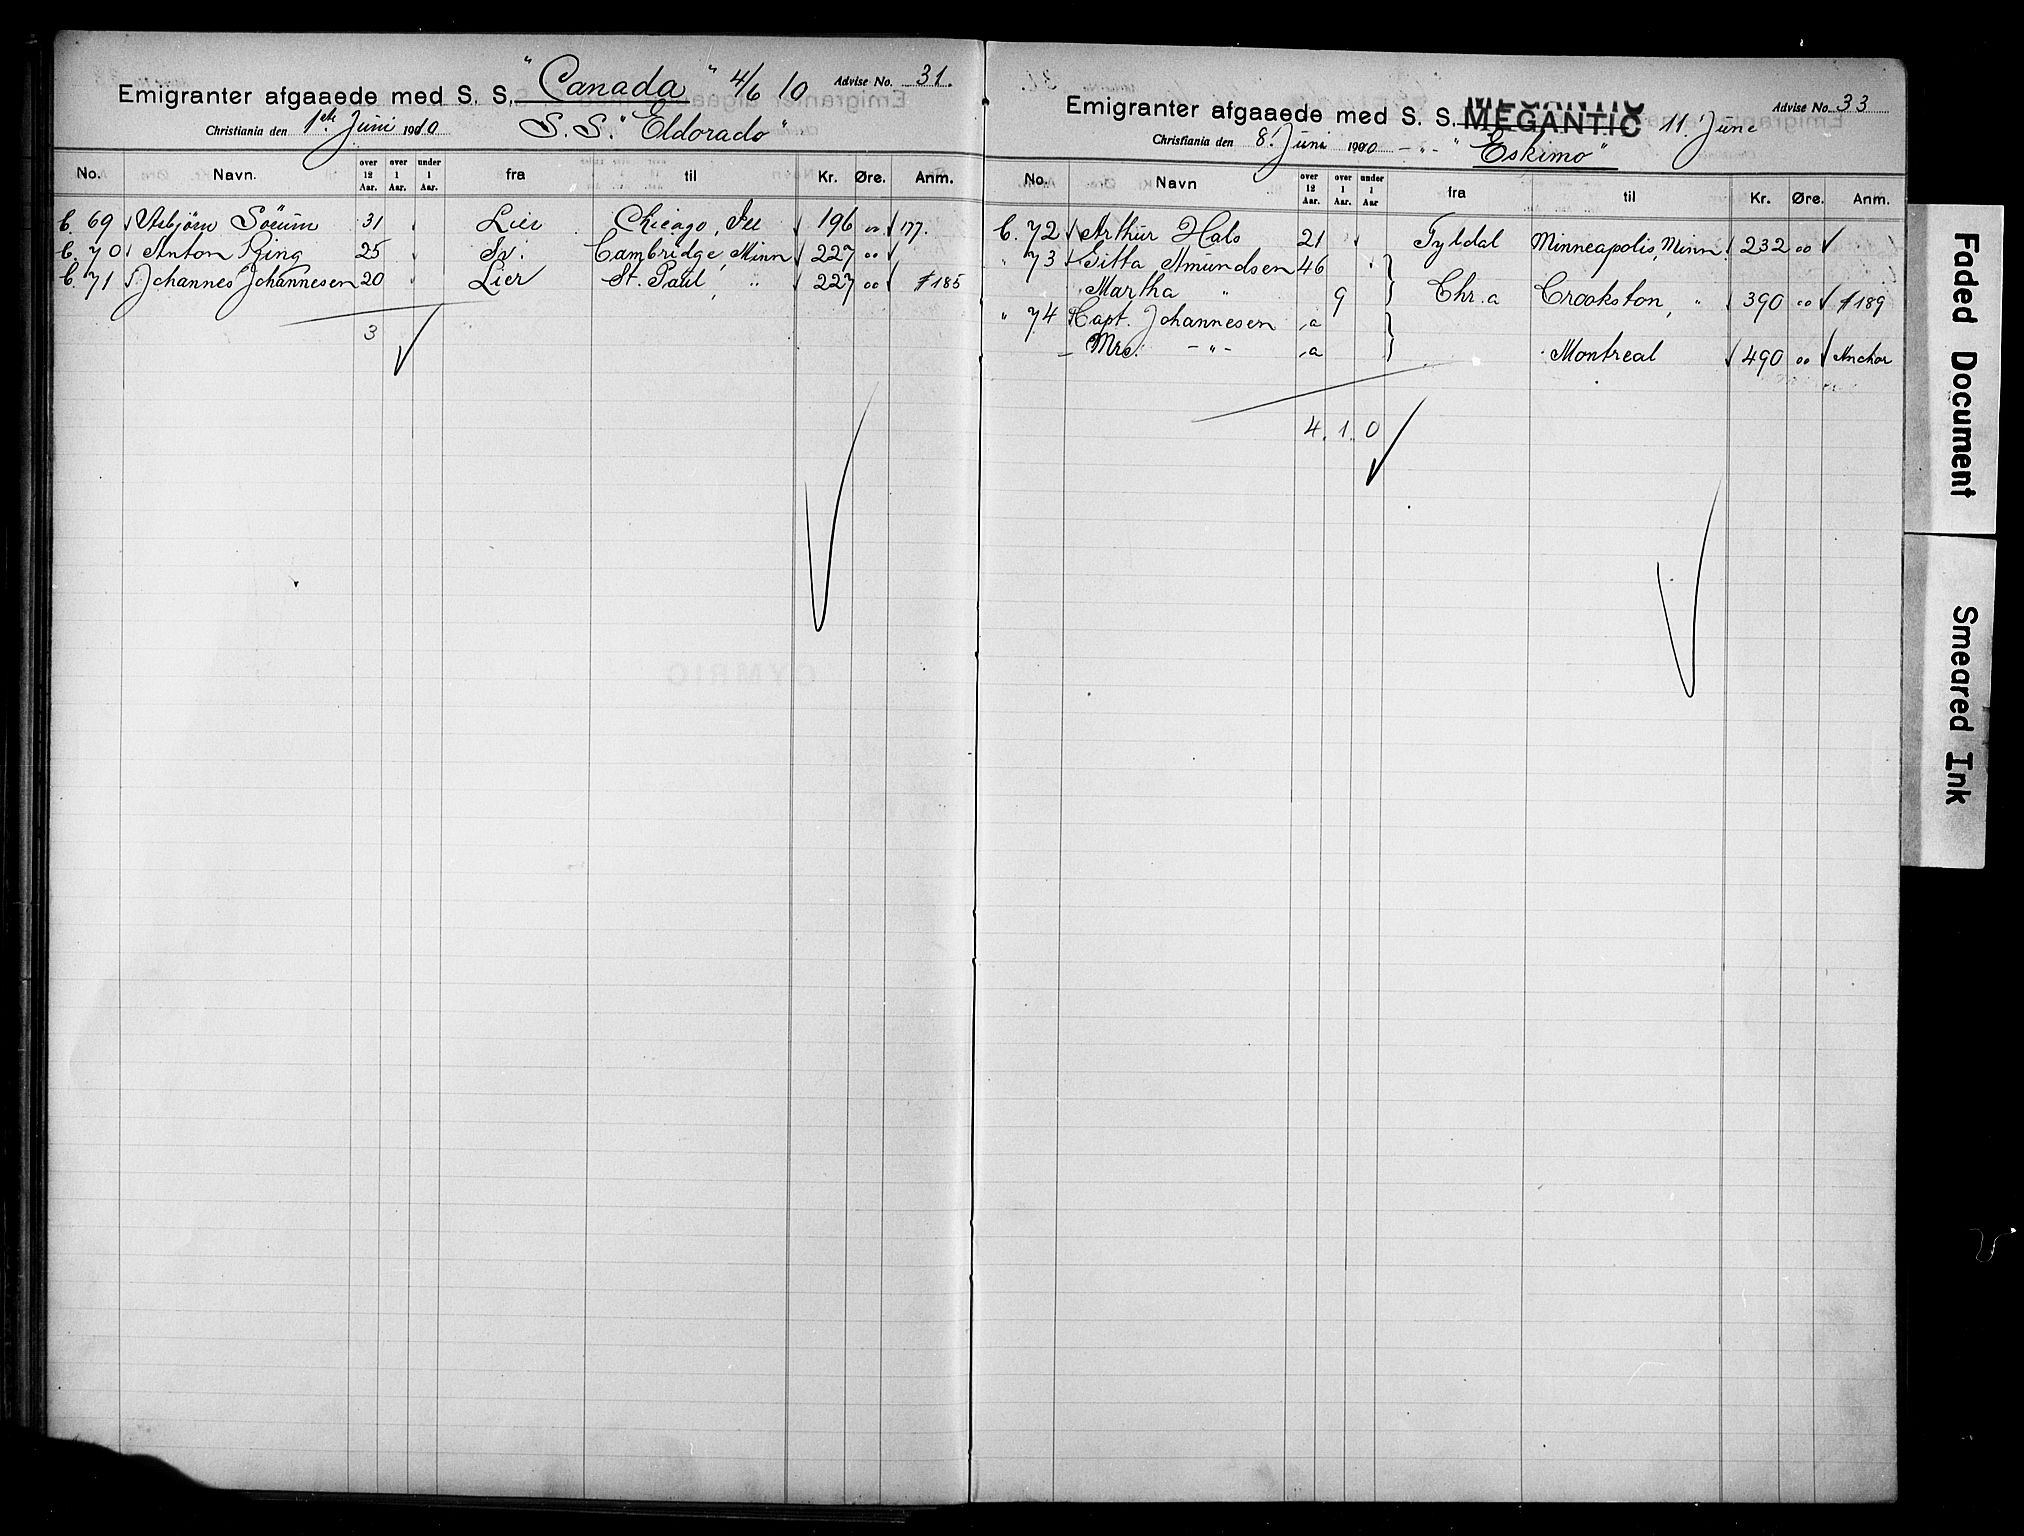 Emigranter afgaaede med S. S. "Canada" 4/6 10 Advise No. 31.
Christiania den 1ste Juni 1910 S.S. "Eldorado"
No. Navn. over 12 Aar. over 1 Aar. under 1 Aar. fra til Kr. Øre. Anm.
C. 69 Asbjörn Söeum 31 Lier Chicago, Ill 196 00 177.
C. 70 Anton Ring 25 Cambridge, Minn 227 00
C. 71 Johannes Johannesen 20 Lier St. Paul, " 227 00 185
3
Emigranter afgaaede med S. S. MEGANTIC 11 June Advise No. 33
Christiania den 8. Juni 1910 - " - "Eskimo"
No. Navn over 12 Aar. over 1 Aar. under 1 Aar fra til Kr. Øre. Anm.
C. 72 Arthur Hals 21 Tyldal Minneapolis, Minn. 232 00
" 73 Gitta Amundsen 46
Martha " 9 Chr.a Crookston, " 390 00 189
" 74 Capt. Johannesen a
Mrs. - " - a Montreal 490 00 Anchor
4. 1. 0
Faded Document
Smeared Ink